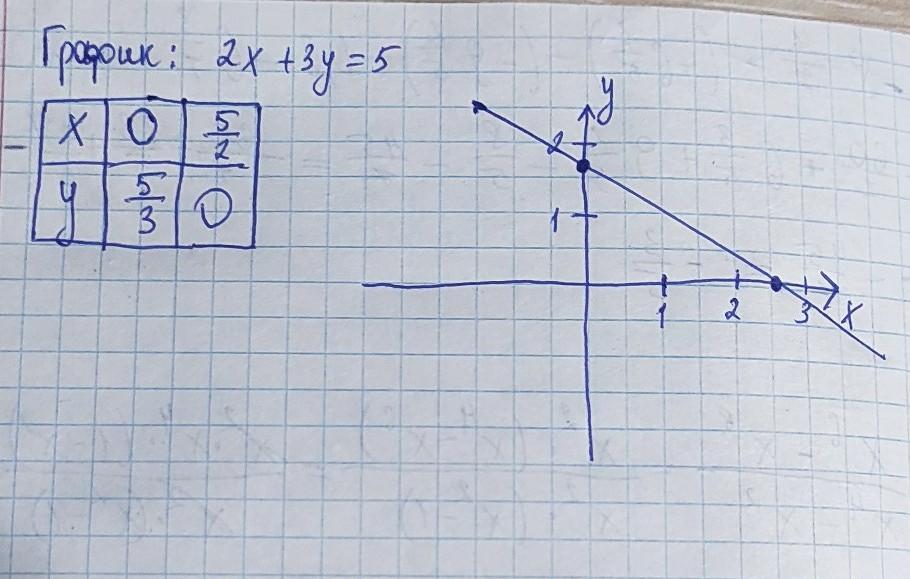 График: 2x + 3y = 5
x 0 5/2
y 5/3 0
y
2
1
1 2 3 x